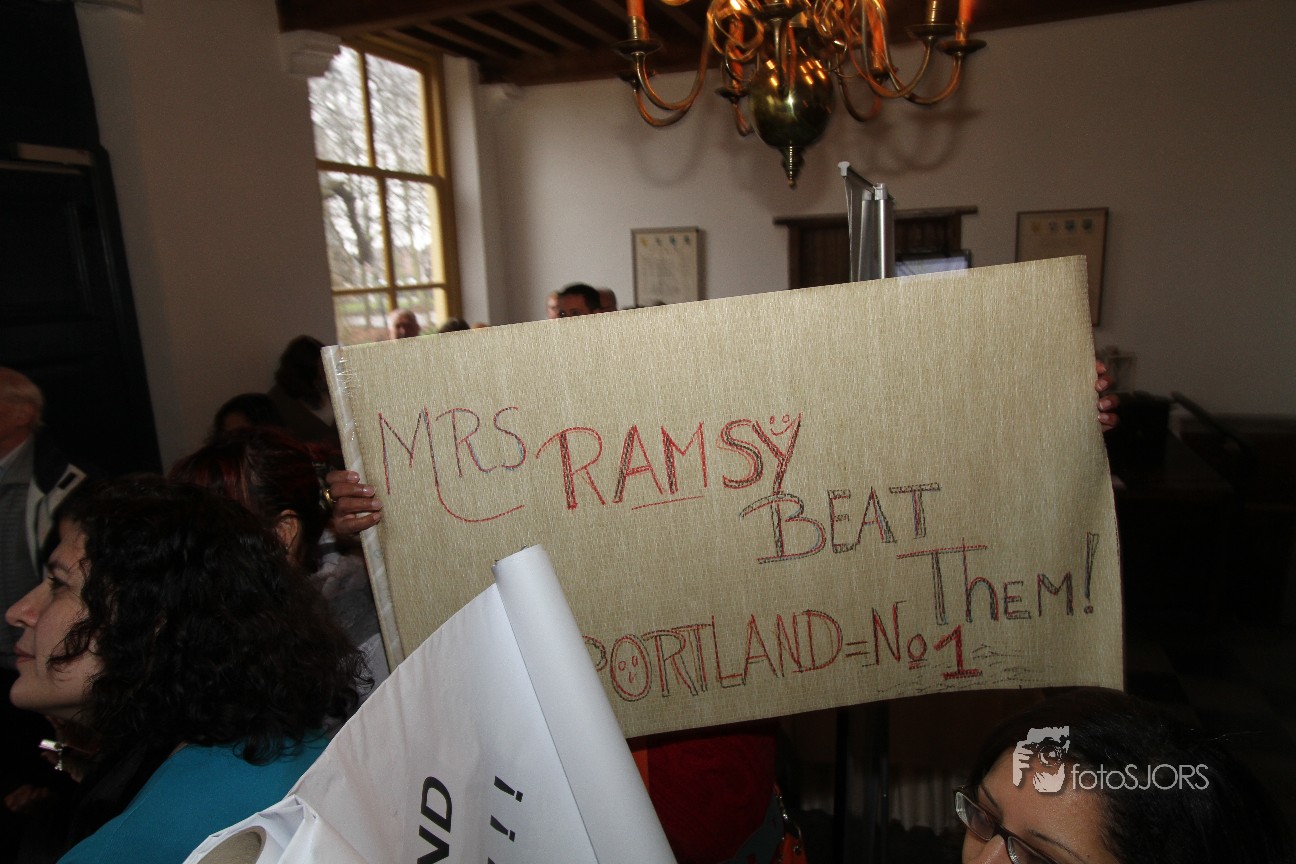 MRS RAMSY
BEAT
THEM!
PORTLAND=No1
ND
!!!
fotoSJORS